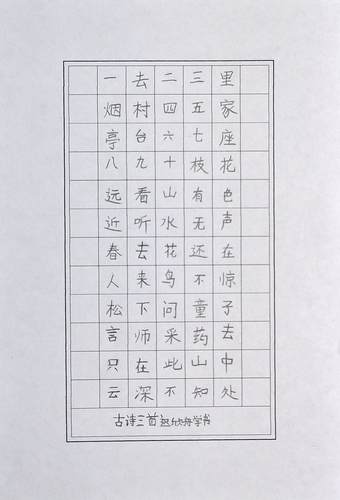 一去二三里
烟村四五家
亭台六七座
八九十枝花
远看山有色
近听水无声
春去花还在
人来鸟不惊
松下问童子
言师采药去
只在此山中
云深不知处
古诗三首 学书